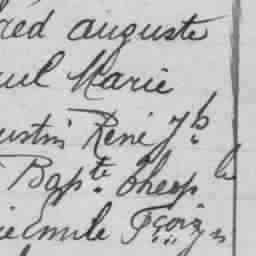 red auguste
ul Marie
ustin René J b
Bapte Theop le
ie Emile Fçois